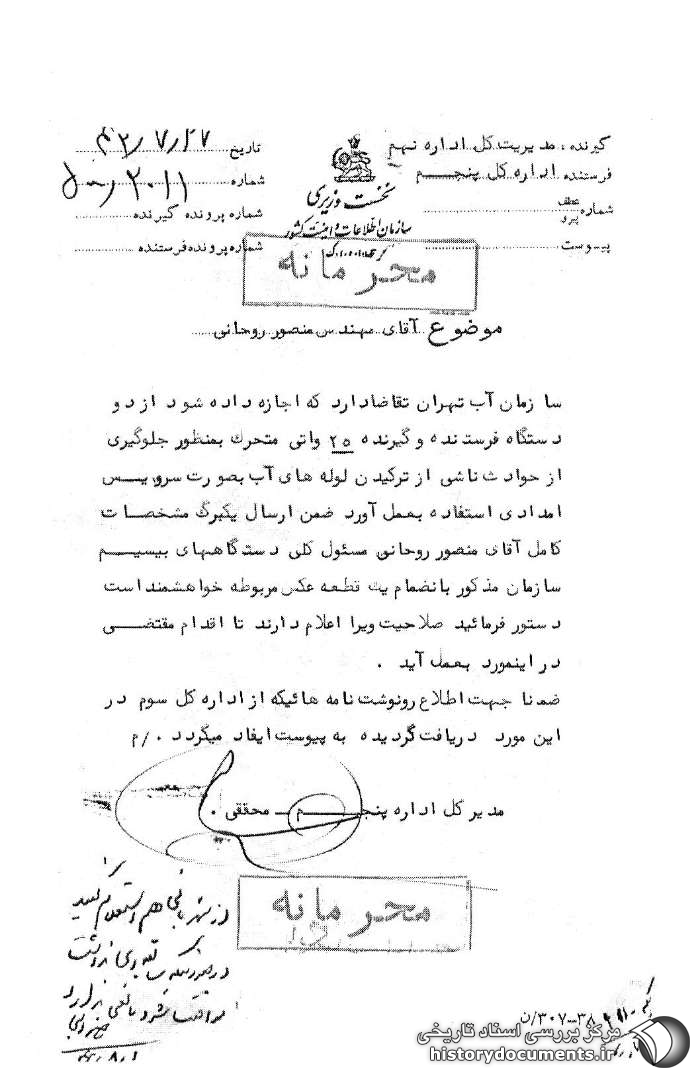 گیرنده : مدیریت کل اداره نهم
فرستنده اداره کل پنجم
شماره عطف پیرو
پیوست
نخست وزیری
سازمان اطلاعات و امنیت کشور
تاریخ ۴۲/۷/۲۷
شماره ۲۰۱۱
شماره پرونده گیرنده
شماره پرونده فرستنده
محرمانه
موضوع آقای مهندس منصور روحانی
سازمان آب تهران تقاضا دارد که اجازه داده شود از دو
دستگاه فرستنده و گیرنده ۲۵ واتی متحرک بمنظور جلوگیری
از حوادث ناشی از ترکیدن لوله های آب بصورت سرویس
امدادی استفاده بعمل آورد ضمن ارسال یکبرگ مشخصات
کامل آقای منصور روحانی مسئول کلی دستگاههای بیسیم
سازمان مذکور بانضمام یک قطعه عکس مربوطه خواهشمند است
دستور فرمائید صلاحیت ویرا اعلام دارند تا اقدام مقتضی
در اینمورد بعمل آید .
ضمنا جهت اطلاع رونوشت نامه هائیکه از اداره کل سوم در
این مورد دریافت گردیده به پیوست ایفاد میگردد ./م
مدیر کل اداره پنجم ـ محققی .
محرمانه
از شهربانی هم استعلام کنید
در صورتیکه سابقه بدی نداشت
موافقت شود مانعی ندارد
۳۰۷-۳۸/ن
مرکز بررسی اسناد تاریخی
historydocuments.ir